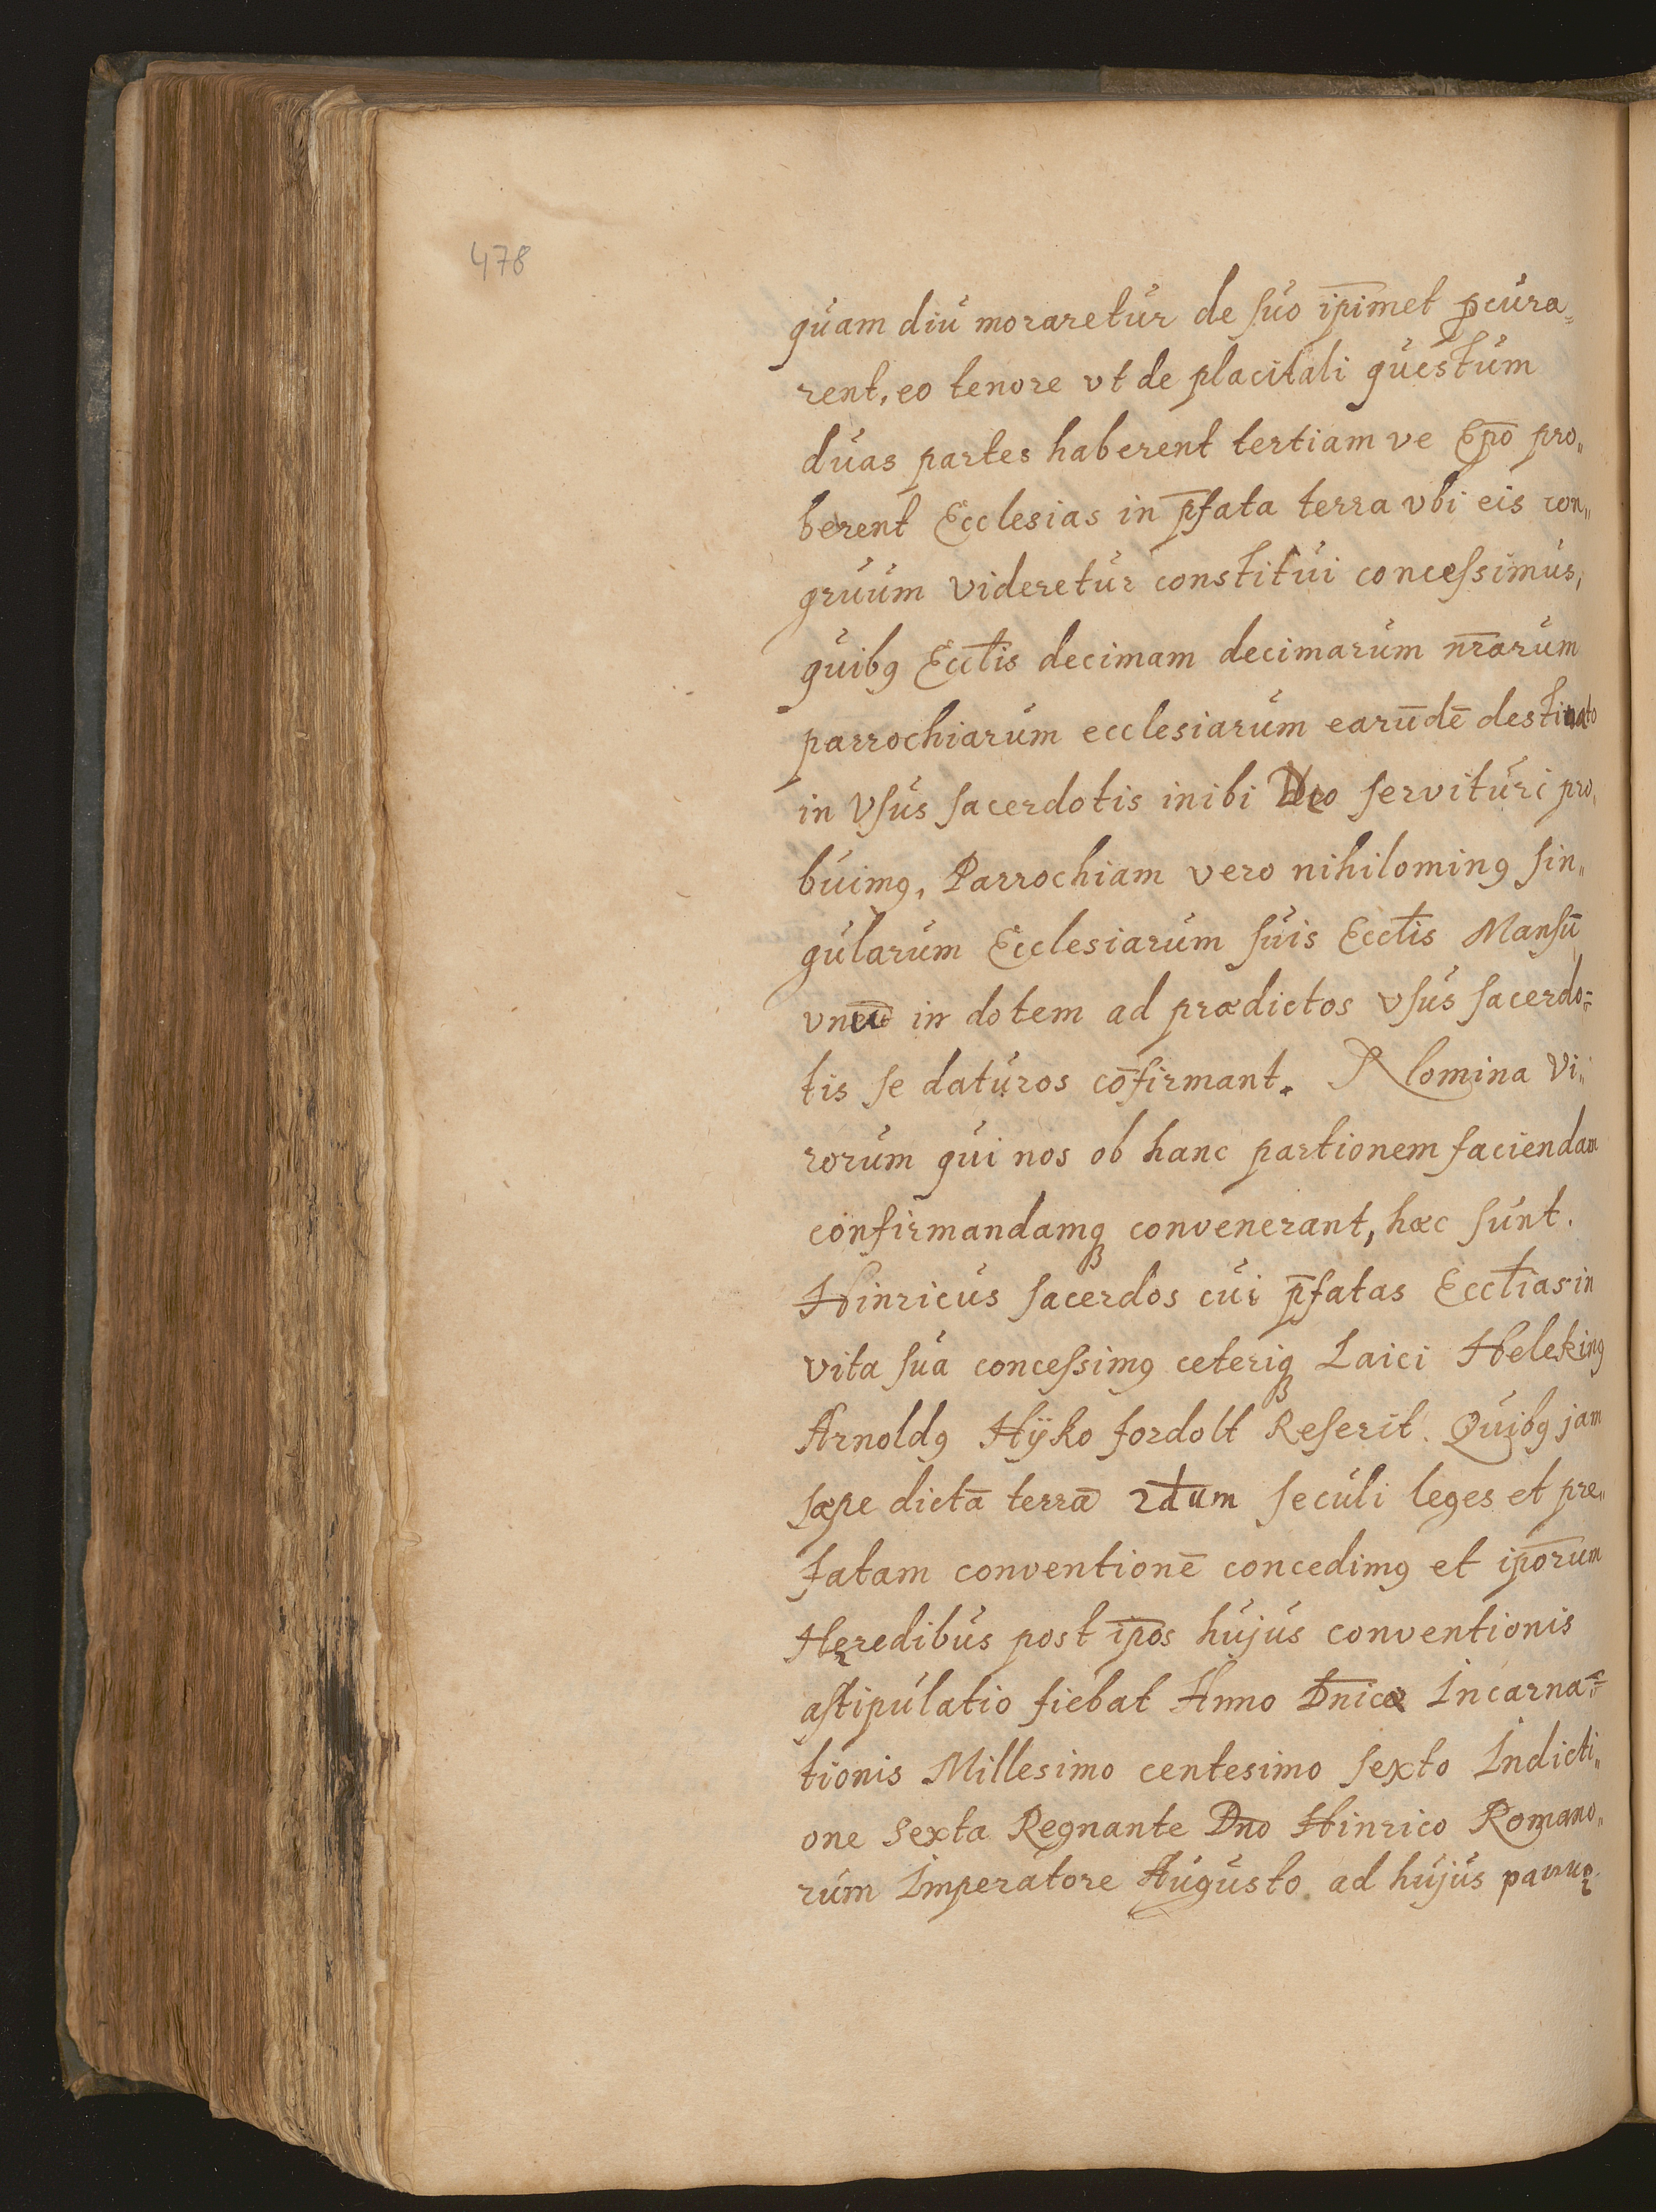 478
quam diu moraretur de suo ip̄imet pcura=
rent, eo tenore vt de placitali questum
duas partes haberent tertiam ve Ep̄o pro„
berent Ecclesias in p̄fata terra vbi eis con„
gruum videretur constitui concessimus,
quibꝫ Eccl̄is decimam decimarum nr̄arum
parrochiarum ecclesiarum earūdē destinato
in Vsus sacerdotis inibi Deo servituri pro„
buimꝰ, Parrochiam vero nihilominꝰ sin„
gularum Ecclesiarum suis Eccl̄is Mansū
vnēū in dotem ad prædictos vsus sacerdo=
tis se daturos cōfirmant. Nomina Vi„
rorum qui nos ob hanc partionem faciendam
confirmandamqꝫ convenerant, hæc sunt.
Hinricus sacerdos cui p̄fatas Eccl̄ias in
vita sua concessimꝰ ceteriqꝫ Laici Helekinꝰ
Arnoldꝰ Hÿko fordolt Referit. Quibꝫ jam
sæpe dictā terrā 2dum seculi leges et pre„
fatam conventionē concedimꝰ et ip̄orum
Hęredibus post ip̄os hujus conventionis
astipulatio fiebat Anno Dn̄icæ Incarna=
tionis Millesimo centesimo sexto Indicti„
one sexta Regnante Dn̄o Hinrico Romano„
rum Imperatore Augusto. ad hujus